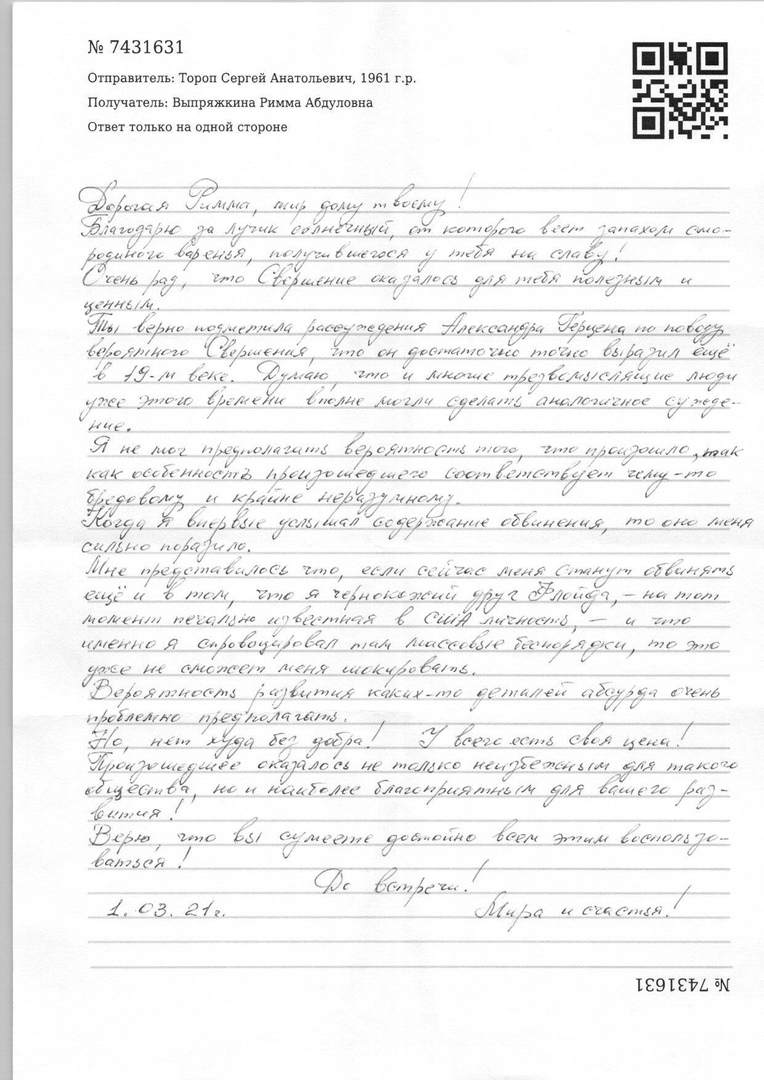 № 7431631
Отправитель: Тороп Сергей Анатольевич, 1961 г.р.
Получатель: Выпряжкина Римма Абдуловна
Ответ только на одной стороне
Дорогая Римма, мир дому твоему!
Благодарю за лучик солнечный, от которого веет запахом смо-
родиного варенья, получившегося у тебя на славу!
Очень рад, что Свершение оказалось для тебя полезным и
ценным.
Ты верно подметила рассуждения Александра Герцена по поводу
вероятного Свершения, что он достаточно точно выразил ещё
в 19-м веке. Думаю, что и многие трезвомыслящие люди
уже этого времени вполне могли сделать аналогичное сужде-
ние.
Я не мог предполагать вероятность того, что произошло, так
как особенность произошедшего соответствует чему-то
бредовому и крайне неразумному.
Когда я впервые услышал содержание обвинения, то оно меня
сильно поразило.
Мне представилось что, если сейчас меня станут обвинять
ещё и в том, что я чернокожий друг Флойда, – на тот
момент печально известная в США личность, – и что
именно я спровоцировал там массовые беспорядки, то это
уже не сможет меня шокировать.
Вероятность развития каких-то деталей абсурда очень
проблемно предполагать.
Но, нет худа без добра! У всего есть своя цена!
Произошедшее оказалось не только неизбежным для такого
общества, но и наиболее благоприятным для вашего раз-
вития!
Верю, что вы сумеете достойно всем этим воспользо-
ваться!
До встречи!
1.03.21г. Мира и счастья!
№ 7431631